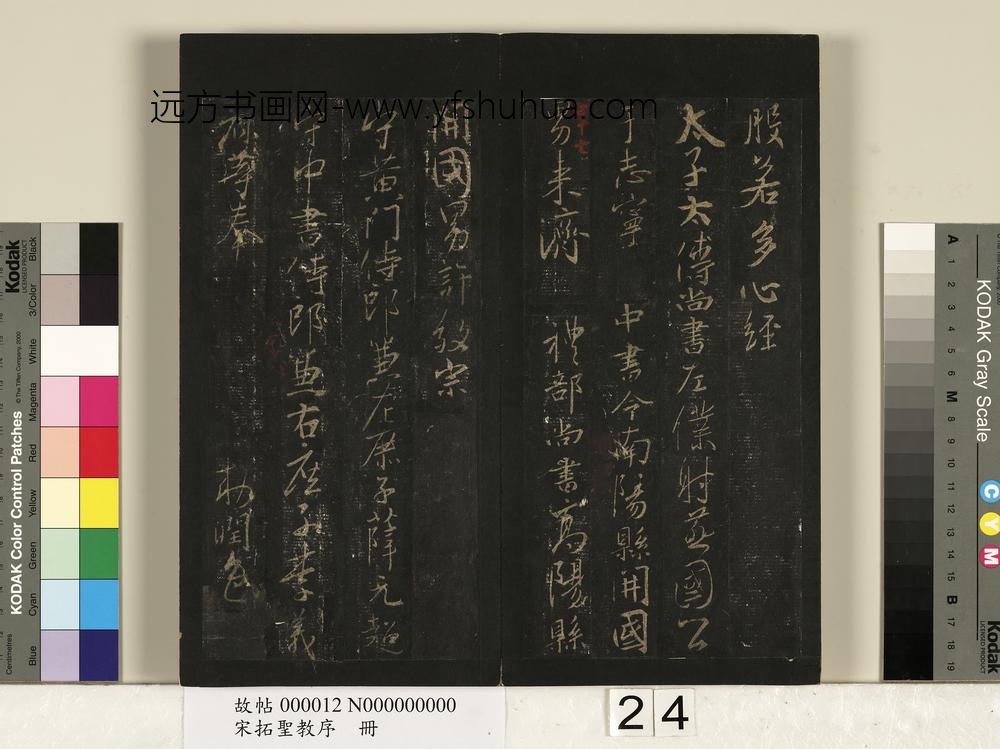 远方书画网-www.yfshuhua.com
般若多心経
太子太傅尚書左僕射燕國公
于志寧 中書令南陽縣開國
男来濟 禮部尚書髙陽縣
開國男許敬宗
守黄門侍郎兼左庶子薛元超
守中書侍郎兼右庶子李義
府等奉 勑潤色
故帖 000012 N000000000
宋拓聖教序 冊
24
Kodak
LICENSED PRODUCT
© The Tiffen Company, 2000
KODAK Color Control Patches
Black
3/Color
White
Magenta
Red
Yellow
Green
Cyan
Blue
Centimetres
KODAK Gray Scale
A 1 2 3 4 5 6 M 8 9 10 11 12 13 14 15 B 17 18 19
C Y M
Kodak
LICENSED PRODUCT